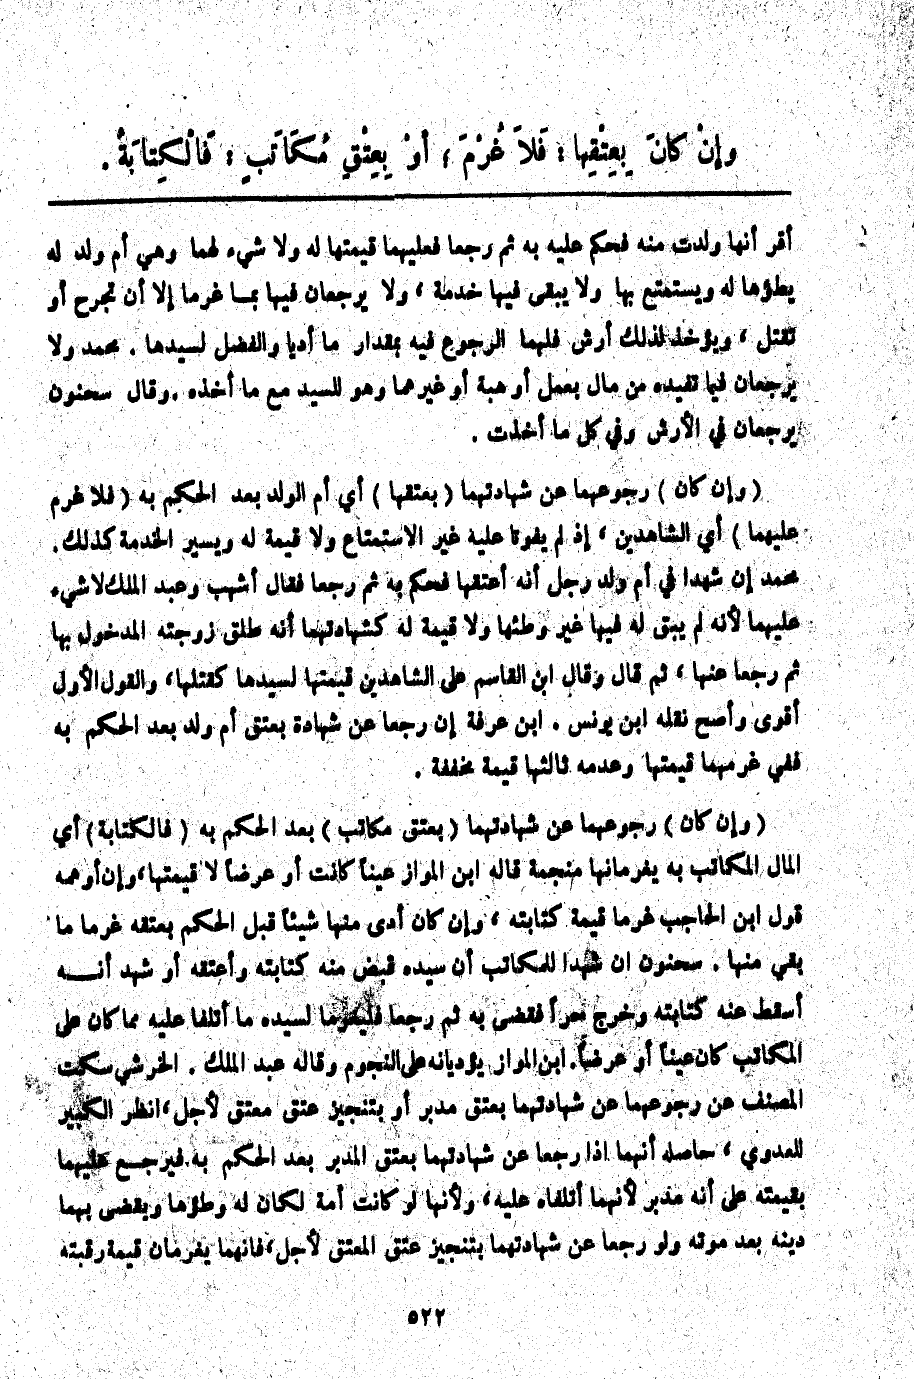 وإنْ كانَ بِعِتْقِها ؛ فَلاَ غُرْمَ ، أوْ بِعِتْقِ مُكَاتَبٍ ؛ فَالْكِتابَةُ .
أقر أنها ولدت منه فحكم عليه به ثم رجعا فعليهما قيمتها له ولا شيء لهما وهي أم ولد له
يطؤها له ويستمتع بها ولا يبقى فيها خدمة ، ولا يرجعان فيها بمـا غرما إلا أن تجرح أو
تقتل ، ويؤخذ لذلك أرش فلهما الرجوع فيه بمقدار ما أديا والفضل لسيدها . محمد ولا
يرجعان فيما تفيده من مال بعمل أو هبة أو غيرهما وهو للسيد مع ما أخذه . وقال سحنون
يرجعان في الأرش وفي كل ما أخذت .
( وإن كان ) رجوعهما عن شهادتهما ( بعتقها ) أي أم الولد بعد الحكم به ( فلا غرم
عليهما ) أي الشاهدين ، إذ لم يفوتا عليه غير الاستمتاع ولا قيمة له ويسير الخدمة كذلك .
محمد إن شهدا في أم ولد رجل أنه أعتقها فحكم به ثم رجعا فقال أشهب وعبد الملك لا شيء
عليهما لأنه لم يبق له فيها غير وطئها ولا قيمة له كشهادتهما أنه طلق زوجته المدخول بها
ثم رجعا عنها ، ثم قال وقال ابن القاسم على الشاهدين قيمتها لسيدها كقتلها ، والقول الأول
أقوى وأصح نقله ابن يونس . ابن عرفة إن رجعا عن شهادة بعتق أم ولد بعد الحكم به
ففي غرمهما قيمتها وعدمه ثالثها قيمة مخففة .
( وإن كان ) رجوعهما عن شهادتهما ( بعتق مكاتب ) بعد الحكم به ( فالكتابة ) أي
المال المكاتب به يغرمانها منجمة قاله ابن المواز عيناً كانت أو عرضاً لا قيمتها ، وإن أوهمه
قول ابن الحاجب غرما قيمة كتابته ، وإن كان أدى منها شيئاً قبل الحكم بعتقه غرما ما
بقي منها . سحنون ان شهدا للمكاتب أن سيده قبض منه كتابته وأعتقه أو شهد أنـــه
أسقط عنه كتابته وخرج حراً فقضى به ثم رجعا فليغرما لسيده ما أتلفا عليه مما كان على
المكاتب كان عيناً أو عرضاً . ابن المواز يؤديانه على النجوم وقاله عبد الملك . الخرشي سكت
المصنف عن رجوعهما عن شهادتهما بعتق مدبر أو بتنجيز عتق معتق لأجل ، انظر الكبير
للعدوي ، حاصله أنهما اذا رجعا عن شهادتهما بعتق المدبر بعد الحكم به فيرجـع عليهما
بقيمته على أنه مدبر لأنهما أتلفاه عليه ، ولأنها لو كانت أمة لكان له وطؤها ويقضى بهما
دينه بعد موته ولو رجعا عن شهادتهما بتنجيز عتق المعتق لأجل ، فانهما يغرمان قيمة رقبته
٥٢٢